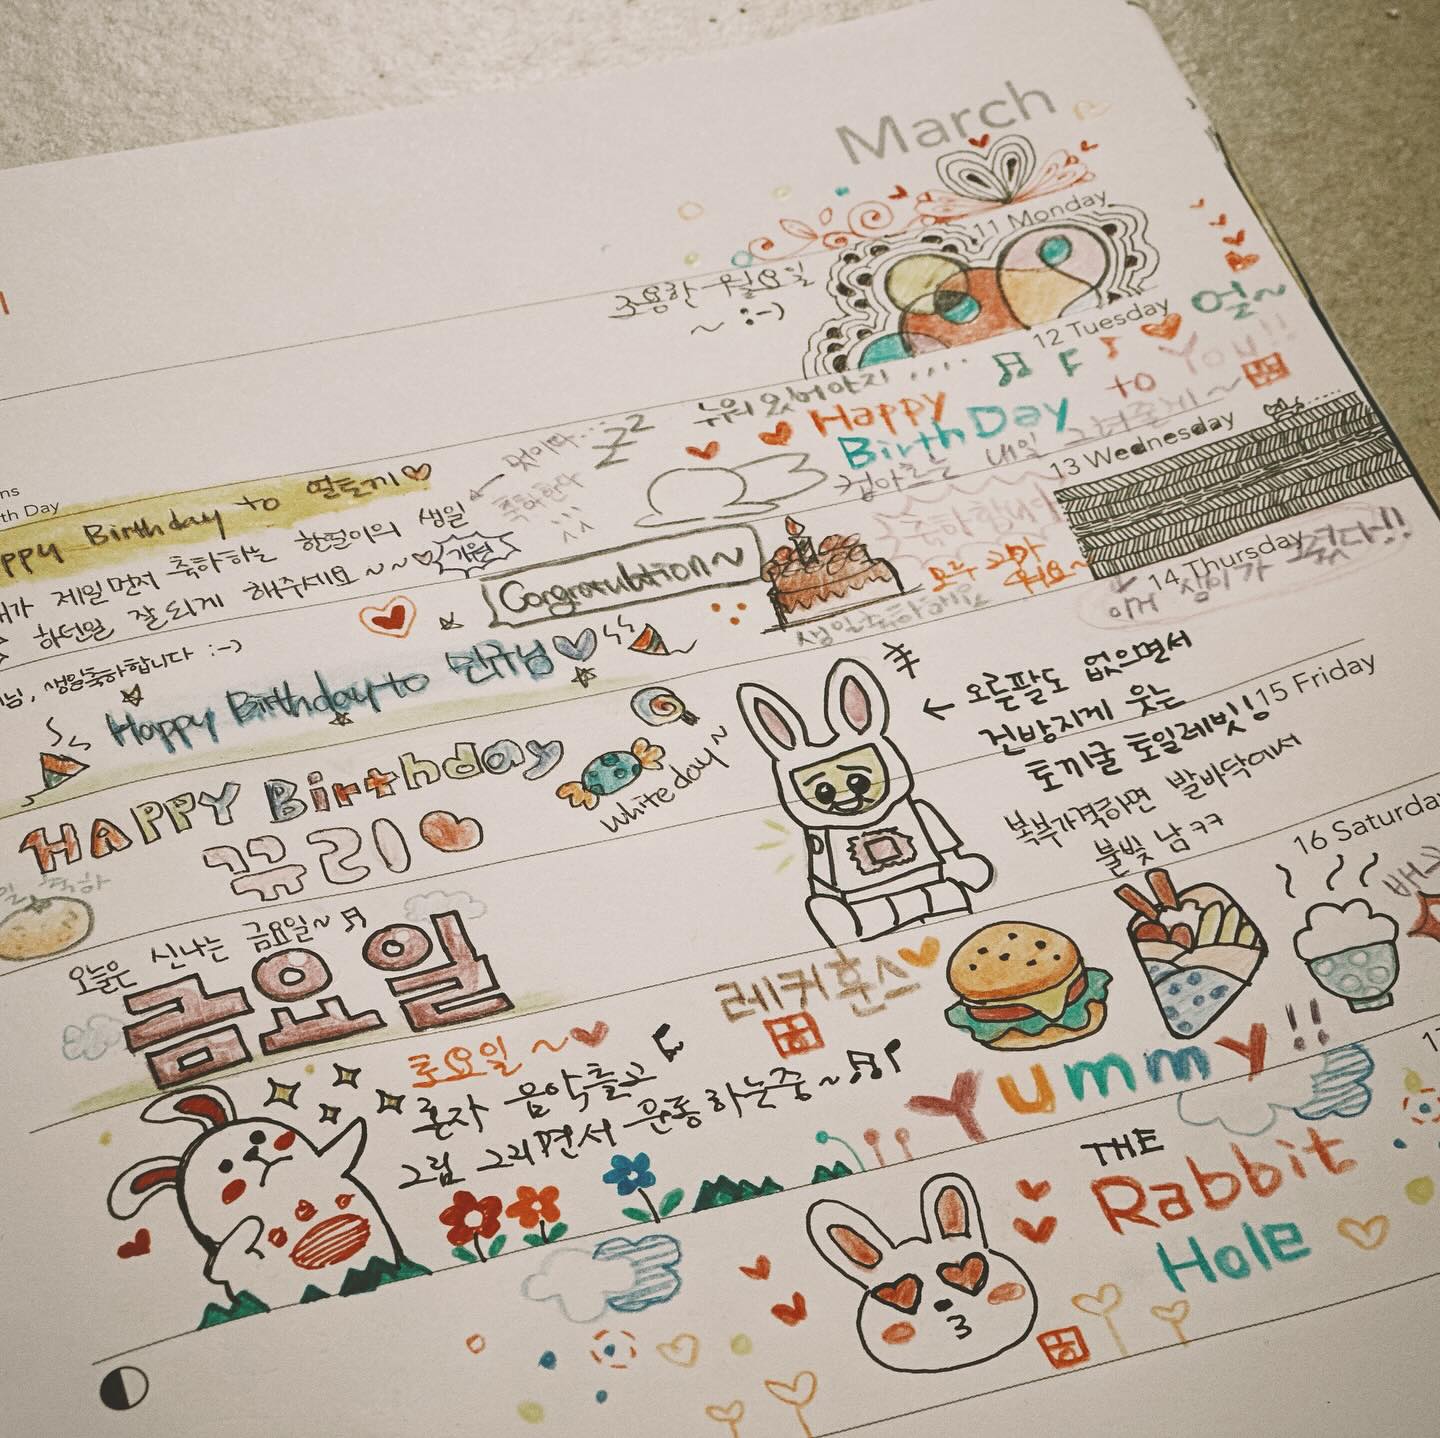 March
11 Monday
조용한 월요일
~ :-)
12 Tuesday
누워있어야지....
Happy
BirthDay
to
You!!
13 Wednesday
zzz
th Day
Happy Birthday to 떨토끼♡
제일먼저 축하하는 한떨이의 생일
하던일 잘되게 해주세요~~♡
기원
축하한다
Congratulation~
축하합니다
모두 고마
워요~
생일축하해요
14 Thursday
이거 심이가
생일축하합니다 :-)
Happy Birthday to 민규님
HAPPY Birthday
뀨리
White day~
← 오른팔도 없으면서
건방지게 웃는
토끼굴 토일레빗!
15 Friday
복부가격하면 발바닥에서
불빛 남 ㅋㅋ
오늘은 신나는 금요일~
금요일
16 Saturday
레커훈스
토요일~
혼자 음악틀고
그림 그리면서 운동하는중~
Yummy!!
17
THE
Rabbit
Hole